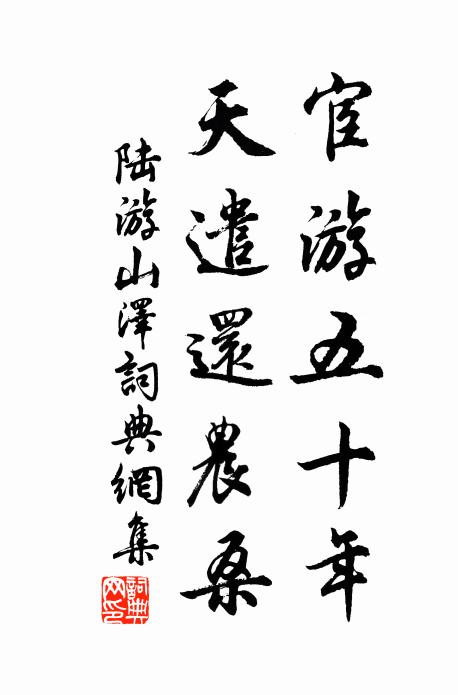 宦游五十年
天遣還農桑
陸游山澤詞典網集
詞典
网印